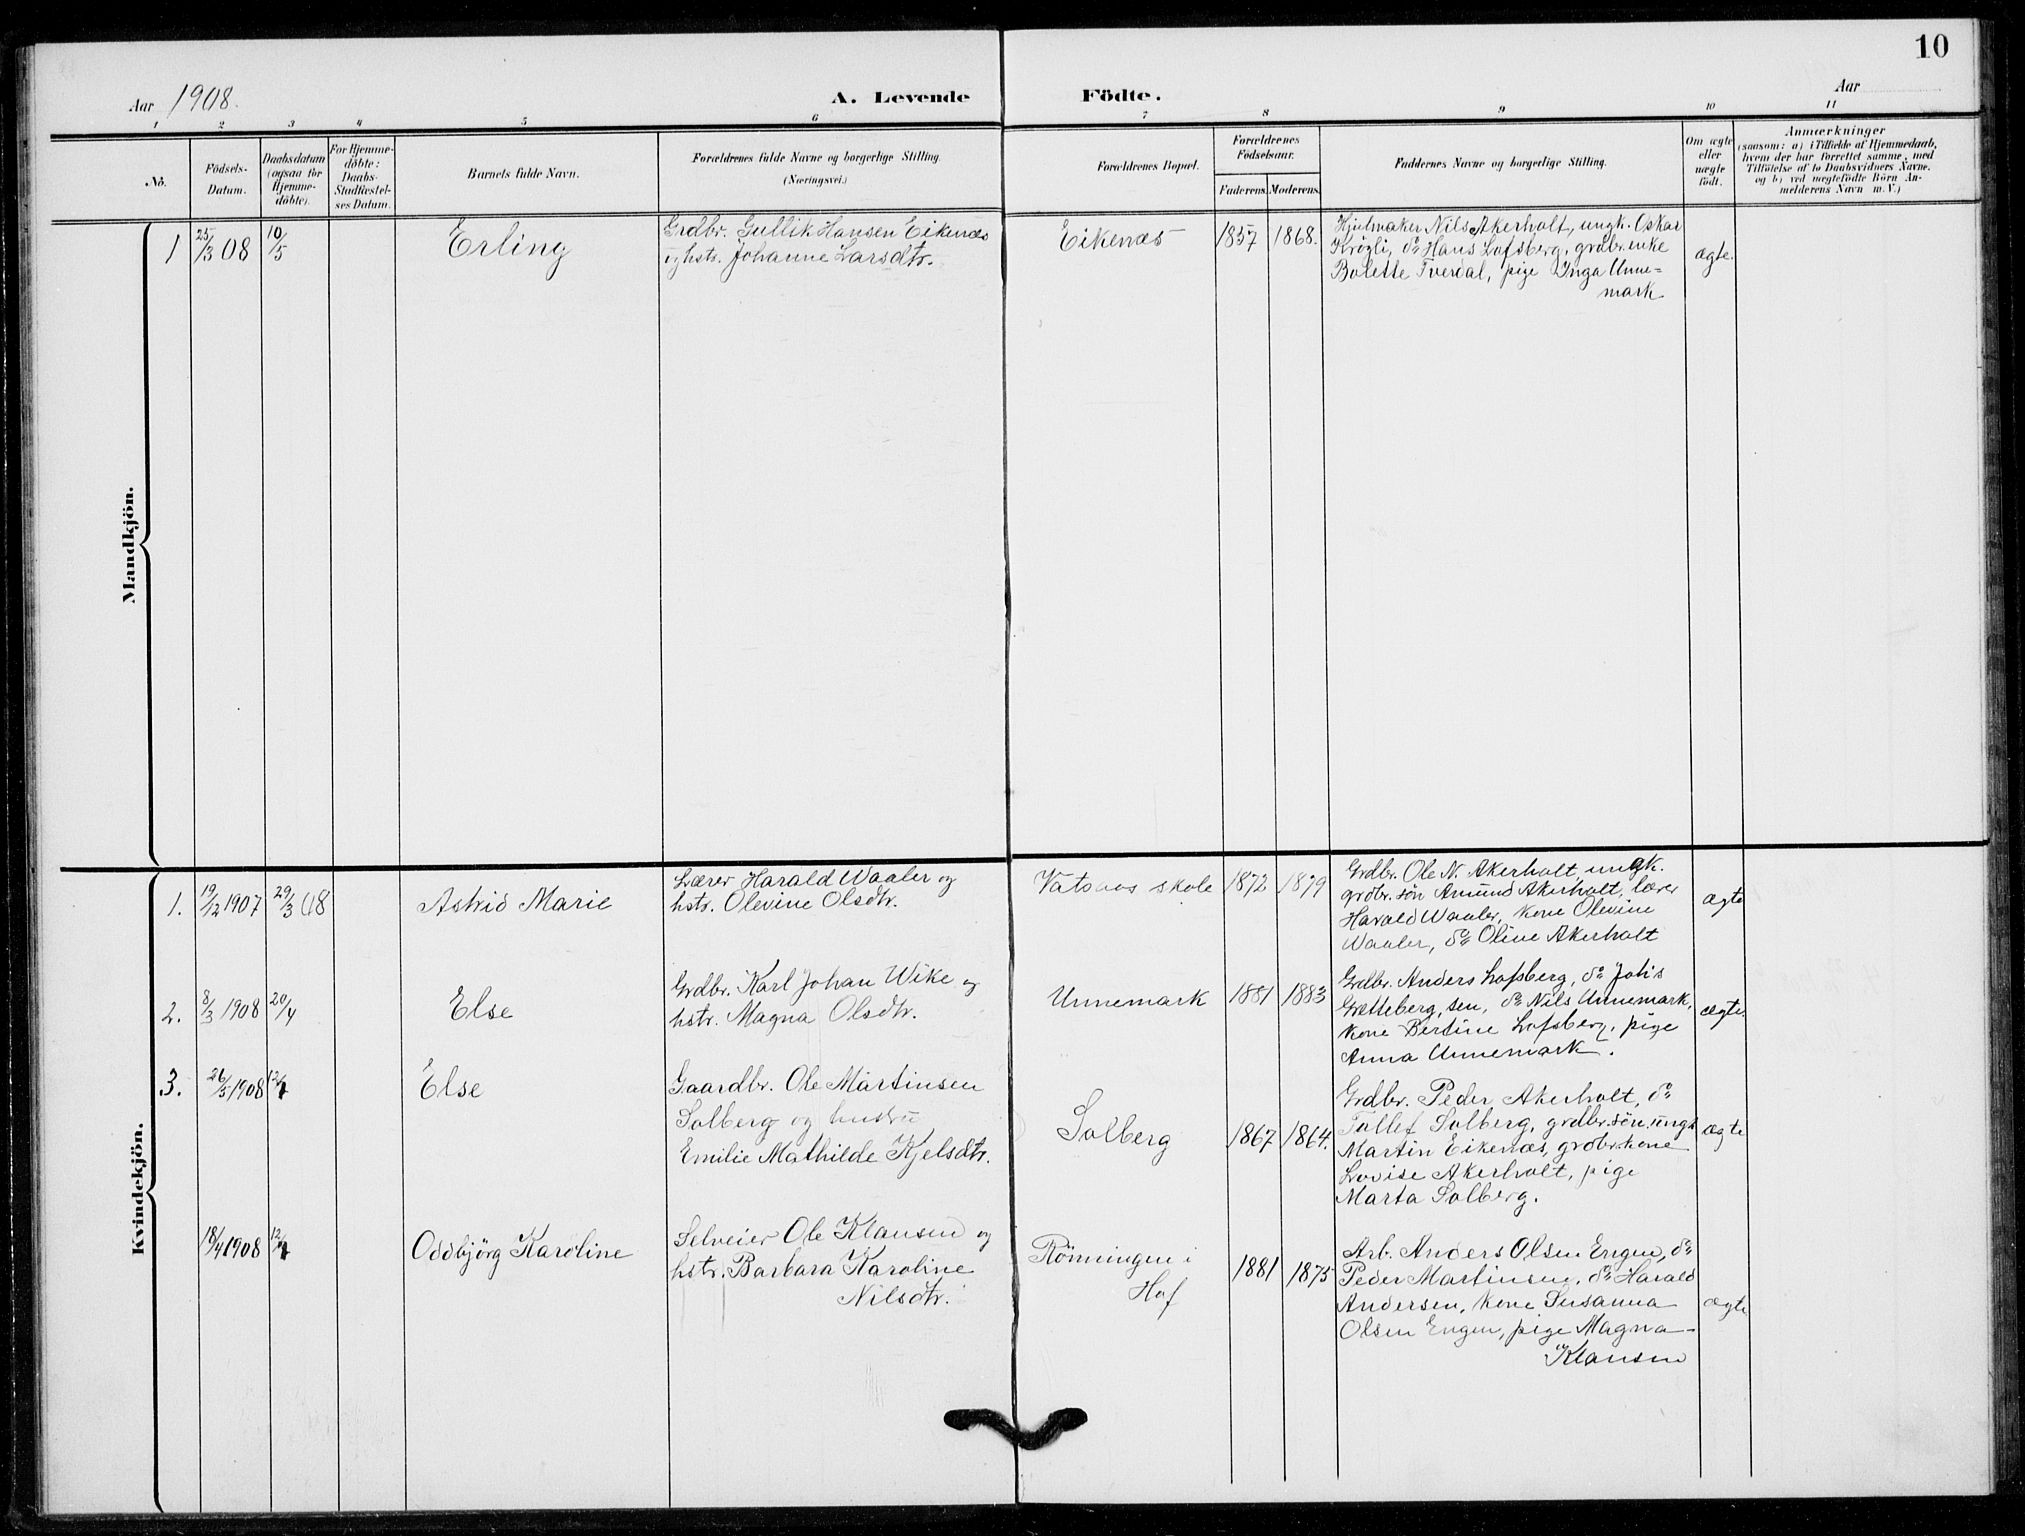 10
Aar 1908.
A. Levende Födte.
Aar
1 2 3 4 5 6 7 8 9 10 11
No.
Födsels-
Datum.
Daabsdatum
(ogsaa for
Hjemme-
döbte).
For Hjemme-
döbte:
Daabs-
Stadfæstel-
ses Datum.
Barnets fulde Navn.
Forældrenes fulde Navne og borgerlige Stilling.
(Næringsvei.)
Forældrenes Bopæl.
Forældrenes
Födselsaar.
Faderens. Moderens.
Faddernes Navne og borgerlige Stilling.
Om ægte
eller
uægte
födt.
Anmærkninger
(saasom: a) i Tilfælde af Hjemmedaab,
hvem der har forrettet samme, med
Tilföielse af to Daabsvidners Navne.
og b) ved uægtefödte Börn An-
melderens Navn m. V.)
Mandkjön.
1 25/3 08 10/5
Erling
Grdbr. Gullik Hansen Eikenæs
og hstr. Johanne Larsdtr.
Eikenæs
1857 1868.
Hjulmaker Nils Akerholt, ungk. Oskar
Krøgli, do Hans Lofsberg, grdbr.enke
Bolette Tverdal, pige Inga Unne-
mark
ægte.
Kvindekjön.
1. 19/12 1907 29/3 08
Astrid Marie
Lærer Harald Waaler og
hstr. Olevine Olsdtr.
Vatsaas skole
1872 1879
Grdbr. Ole N. Akerholt, ungk.
grdbr.søn Amund Akerholt, lærer
Harald Waaler, kone Olevine
Waaler, do Oline Akerholt
ægte
2. 8/3 1908 20/4
Else
Grdbr. Karl Johan Wike og
hstr. Magna Olsdtr.
Unnemark
1881 1883
Grdbr. Anders Lofsberg, do Johs
Grætteberg, sen, do Nils Unnemark,
kone Bertine Lofsberg, pige
Anna Unnemark.
ægte.
3. 26/5 1908 12/7
Else
Gaardbr. Ole Martinsen
Solberg og hustru
Emilie Mathilde Kjelsdtr.
Solberg
1867 1864.
Grdbr. Peder Akerholt, do
Tollef Solberg, grdbr.søn, ungk
Martin Eikenæs, grdbr.kone
Lovise Akerholt, pige
Marta Solberg.
ægte
18/4 1908 12/7
Oddbjörg Karoline
Selveier Ole Klausen og
hstr. Barbara Karoline
Nilsdtr.
Rönningen i
Hof
1881 1875
Arb. Anders Olsen Engen, do
Peder Martinsen, do Harald
Andersen, kone Susanna
Olsen Engen, pige Magna
Klausen
ægte